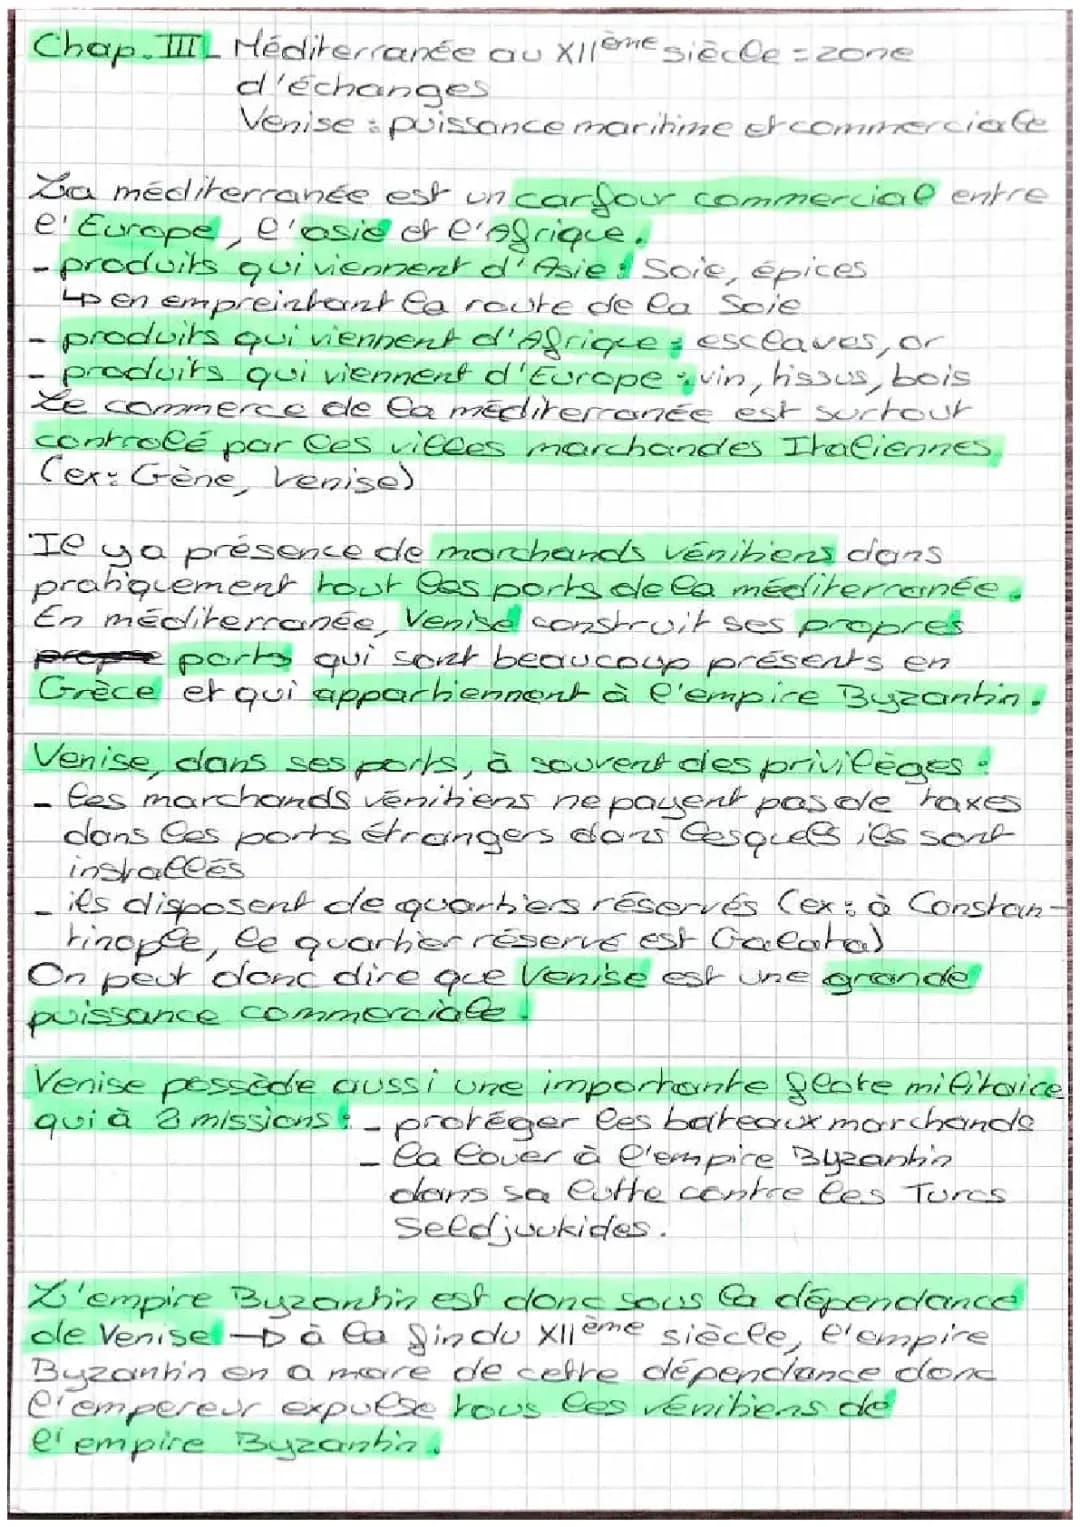 Chap. III_ Méditerranée au XIIème siècle = zone
d'échanges
Venise : puissance maritime et commerciale
La méditerranée est un carfour commercial entre
l'Europe, l'asie et l'Afrique.
- produits qui viennent d'Asie : Soie, épices
↳ en empreintant la route de la Soie
- produits qui viennent d'Afrique : esclaves, or
- produits qui viennent d'Europe : vin, tissus, bois
Le commerce de la méditerranée est surtout
controlé par les villes marchandes Italiennes
(ex: Gène, Venise)
Il y a présence de marchands vénitiens dans
pratiquement tout les ports de la méditerranée.
En méditerranée, Venise construit ses propres
ports qui sont beaucoup présents en
Grèce et qui appartiennent à l'empire Byzantin.
Venise, dans ses ports, à souvent des privilèges :
- les marchands vénitiens ne payent pas de taxes
dans les ports étrangers dans lesquels ils sont
installés
- ils disposent de quartiers réservés (ex : à Constan-
tinople, le quartier réservé est Galata)
On peut donc dire que Venise est une grande
puissance commerciale.
Venise possède aussi une importante flote militaire
qui à 2 missions : - protéger les bateaux marchands
- la louer à l'empire Byzantin
dans sa lutte contre les Turcs
Seldjoukides.
L'empire Byzantin est donc sous la dépendance
de Venise → à la fin du XIIème siècle, l'empire
Byzantin en a mare de cette dépendance donc
l'empereur expulse tous les vénitiens de
l'empire Byzantin.